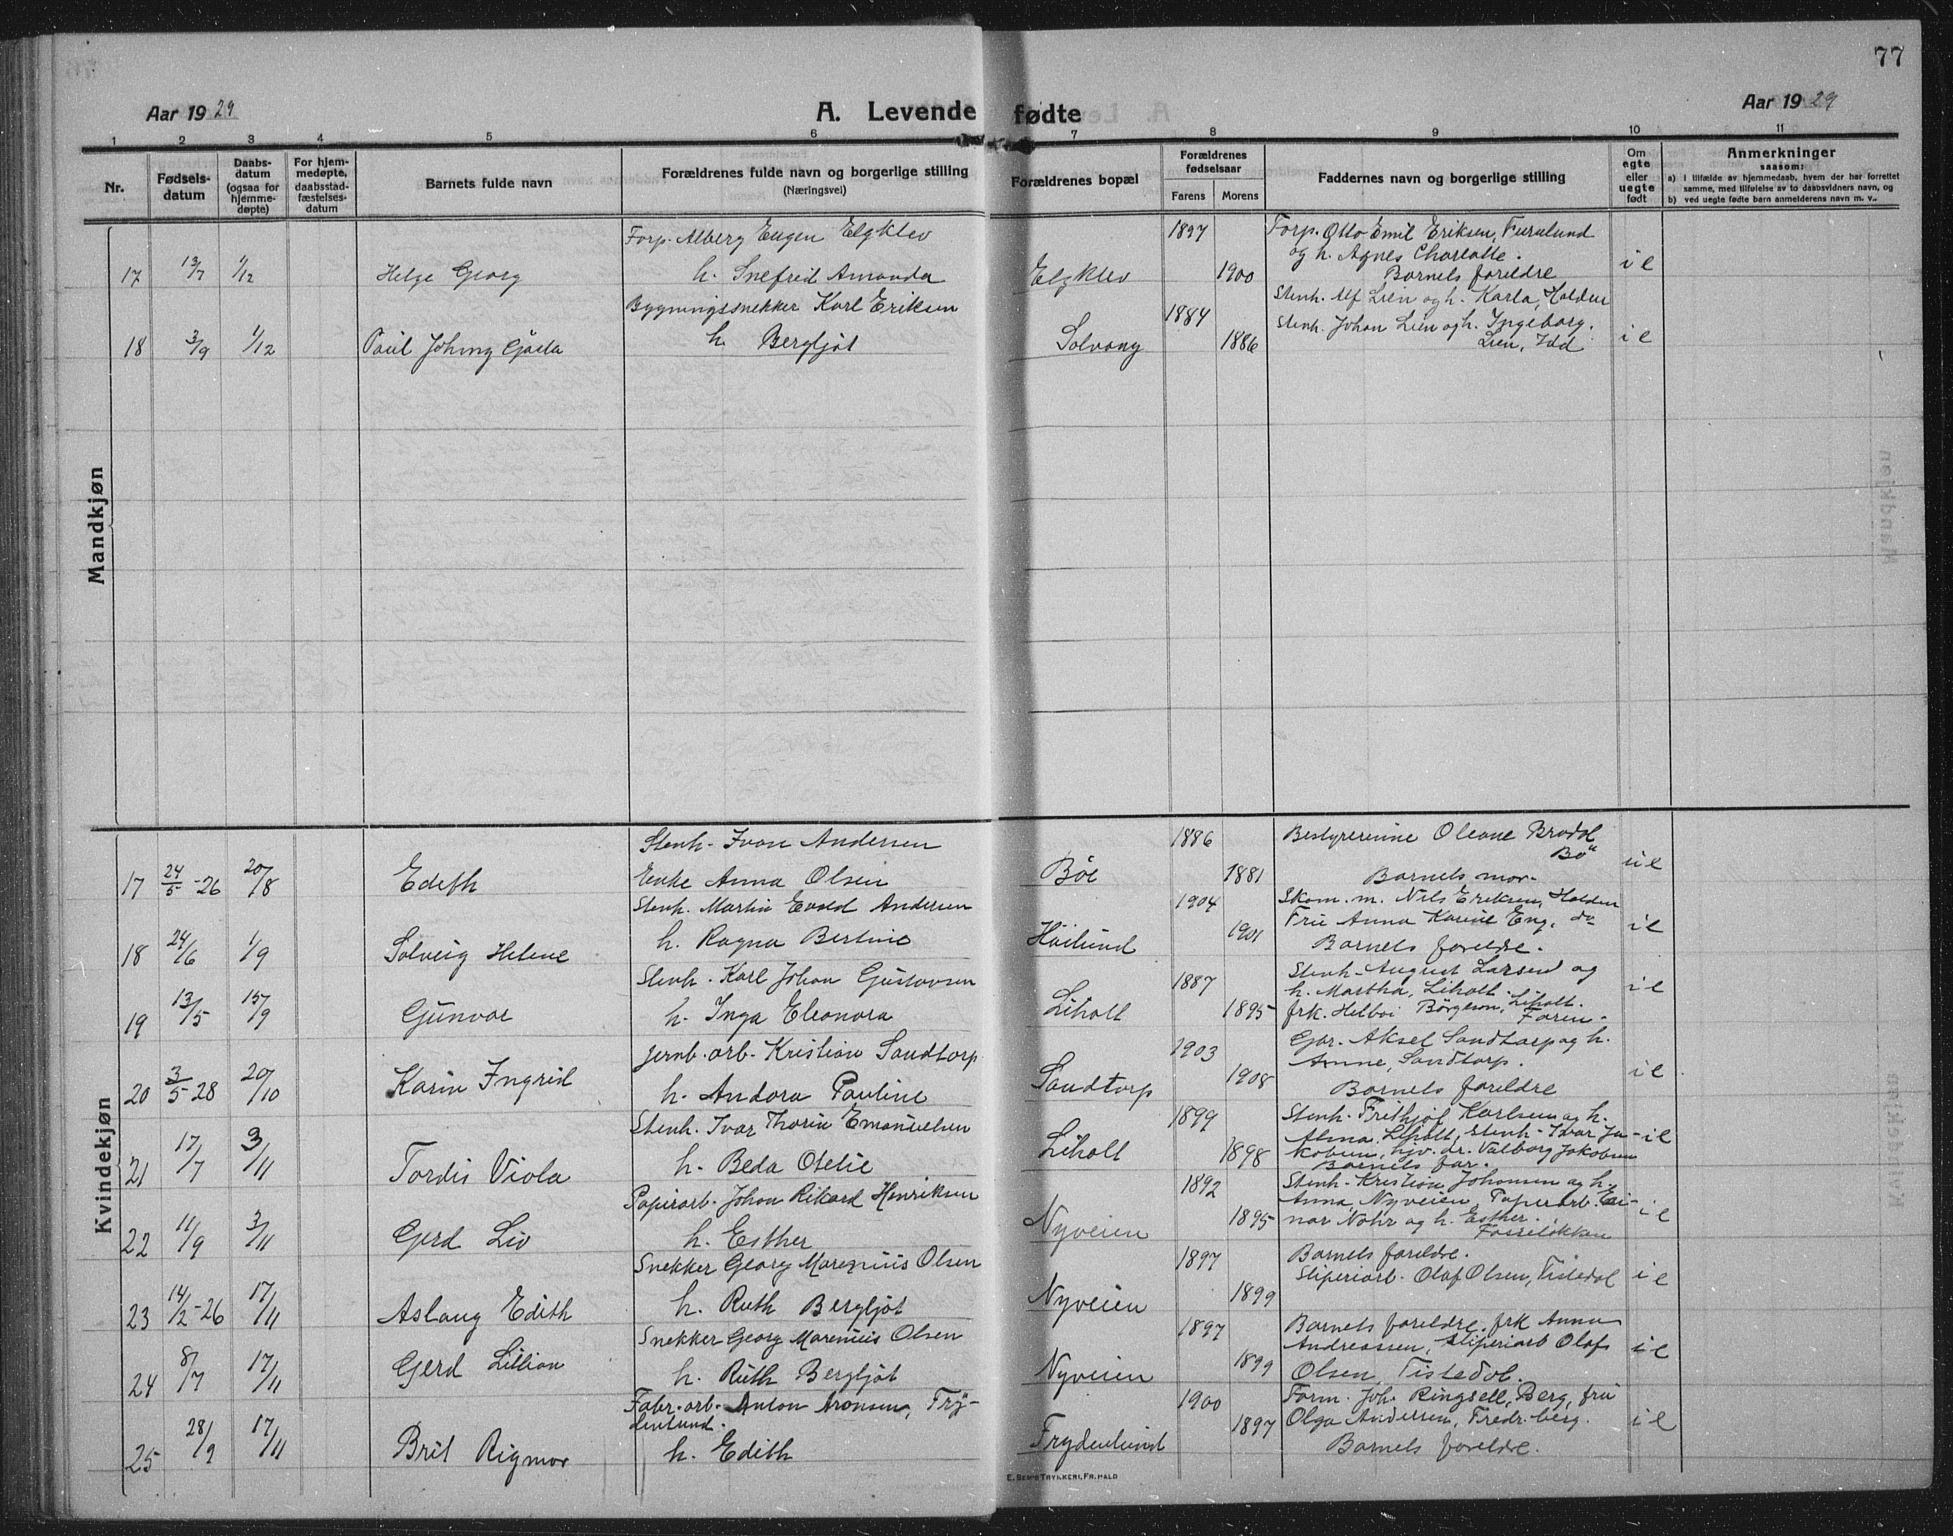 77
Aar 1929
A. Levende fødte
Aar 1929
1 2 3 4 5 6 7 8 9 10 11
Nr.
Fødsels-
datum
Daabs-
datum
(ogsaa for
hjemme-
døpte)
For hjem-
medøpte,
daabsstad-
fæstelses-
datum
Barnets fulde navn
Forældrenes fulde navn og borgerlige stilling
(Næringsvei)
Forældrenes bopæl
Forældrenes
fødselsaar
Farens Morens
Faddernes navn og borgerlige stilling
Om
egte
eller
uegte
født
Anmerkninger
saasom:
a) I tilfælde av hjemmedaab, hvem der har forrettet
samme, med tilføielse av to daabsvidners navn, og
b) ved uegte fødte barn anmelderens navn m. v..
Mandkjøn
Forp. Alberg Eugen Elgklev 1897 Forp. Otto Emil Eriksen, Furulund
og h. Agnes Charlotte.
17 13/7 1/12 Helge Georg h. Snefrid Amanda Elgklev 1900 Barnets foreldre i e
Bygningssnekker Karl Eriksen 1884 Stenh. Alf Lien og h. Karla, Holden
Stenh. Johan Lien og h. Ingeborg.
18 3/9 1/12 Paul Johny Gösta h. Bergljot Solvang 1886 Lien, Idd i e
Kvindekjøn
Stenh. Ivan Andersen 1886 Bestyrerinne Oleane Brodal
Bö
17 24/5-26 20/8 Edith Enke Anna Olsen Böe 1881 Barnets mor. u e
Stenh. Martin Evald Andersen 1904 Skom. m. Nils Eriksen, Holden
Fru Anna Karine Eng, do
18 24/6 1/9 Solveig Helene h. Ragna Bertine Höilund 1901 Barnets foreldre. i e
Stenh. Karl Johan Gustavsen 1887 Stenh. August Larsen og
h. Martha, Liholt.
19 13/5 15/9 Gunvor h. Inga Eleonora Liholt 1895 frk. Helboi Börgeson, Liholt. i e
Faren.
Jernb. arb. Kristian Sandtorp 1903 Gbr. Aksel Sandtorp og h.
Anne, Sandtorp.
20 3/5-28 20/10 Karin Ingrid h. Andora Pauline Sandtorp 1908 Barnets foreldre i e
Stenh. Ivar Thorin Emanuelsen 1899 Stenh. Frithjof Karlsen og h.
Alma, Liholt, stenh. Ivar Ja- i e
21 17/7 3/11 Tordis Viola h. Beda Otelie Liholt 1898 kobsen, hjv. dr. Valborg Jakobsen
Barnets far.
Papirarb. Johan Rikard Henriksen 1892 Stenh. Kristian Johansen og h.
Anna, Nyveien, Papirarb. Ei-
22 11/9 3/11 Gerd Liv h. Esther Nyveien 1895 nar Nohr og h. Esther. i e
Fosselökkan
Snekker Georg Marenius Olsen 1897 Barnets foreldre.
Sliperiarb. Olaf Olsen, Tistedal i e
23 14/2-26 17/11 Aslaug Edith h. Ruth Bergljot Nyveien 1899
Snekker Georg Marenius Olsen 1897 Barnets foreldre. frk Anna
Andreassen, sliperiarb Olaf
24 8/7 17/11 Gerd Lillian h. Ruth Bergljot Nyveien 1899 Olsen, Tistedal. i e
Fabr. arb. Anton Aronsen, Fry- 1900 Form. Joh. Ringsell, Berg, fru
denlund. 1897 Olga Andersen, Fredr.berg. i e
25 28/9 17/11 Brit Rigmor h. Edith Frydenlund Barnets foreldre.
E. Sem's Trykkeri, Fr.hald